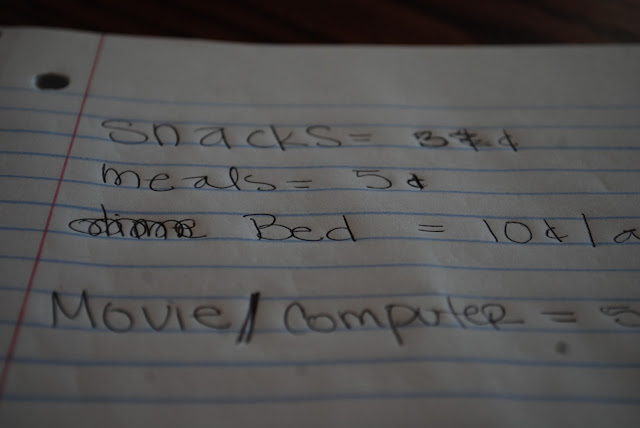 Snacks = 3¢
meals = 5¢
Bed = 10¢/a
Movie/computer = 5